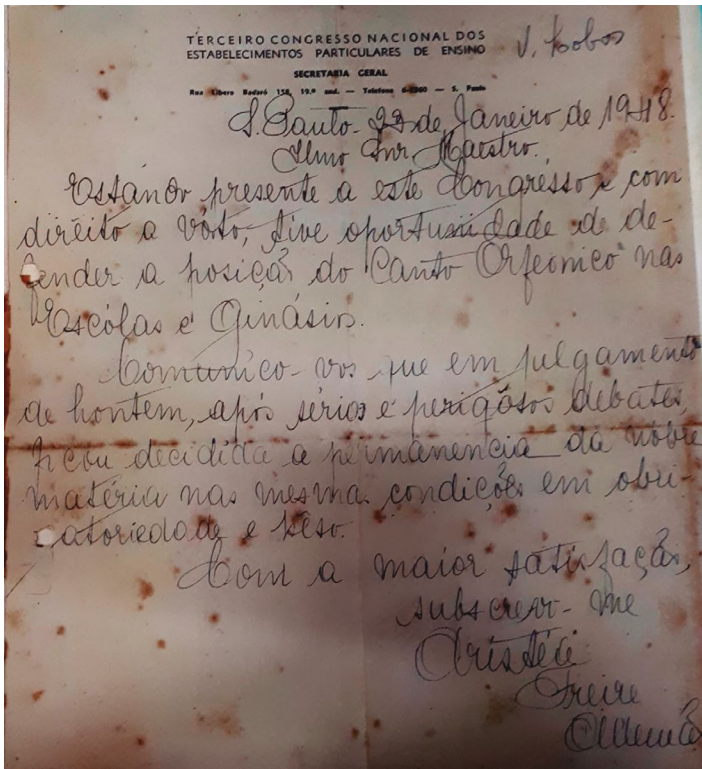 TERCEIRO CONGRESSO NACIONAL DOS
ESTABELECIMENTOS PARTICULARES DE ENSINO
V. Lobos
SECRETARIA GERAL
Rua Libero Badaró 158, 19.º and. — Telefone — S. Paulo
S. Paulo - 22 de Janeiro de 1948.
Ilmo Snr. Maestro.
Estando presente a este Congrésso e com
diréito a vóto, tive oportunidade de de-
fender a posição do "Canto Orfeonico" nas
Escólas e Ginásios.
Comunico-vos que em julgamento
de hontem, após sérios e perigôsos debates,
ficou decidida a permanencia da nóbre
matéria nas mesmas condições em obri-
gatoriedade e
Com a maior satisfação,
subscrevo-me
Aristéa
Freire